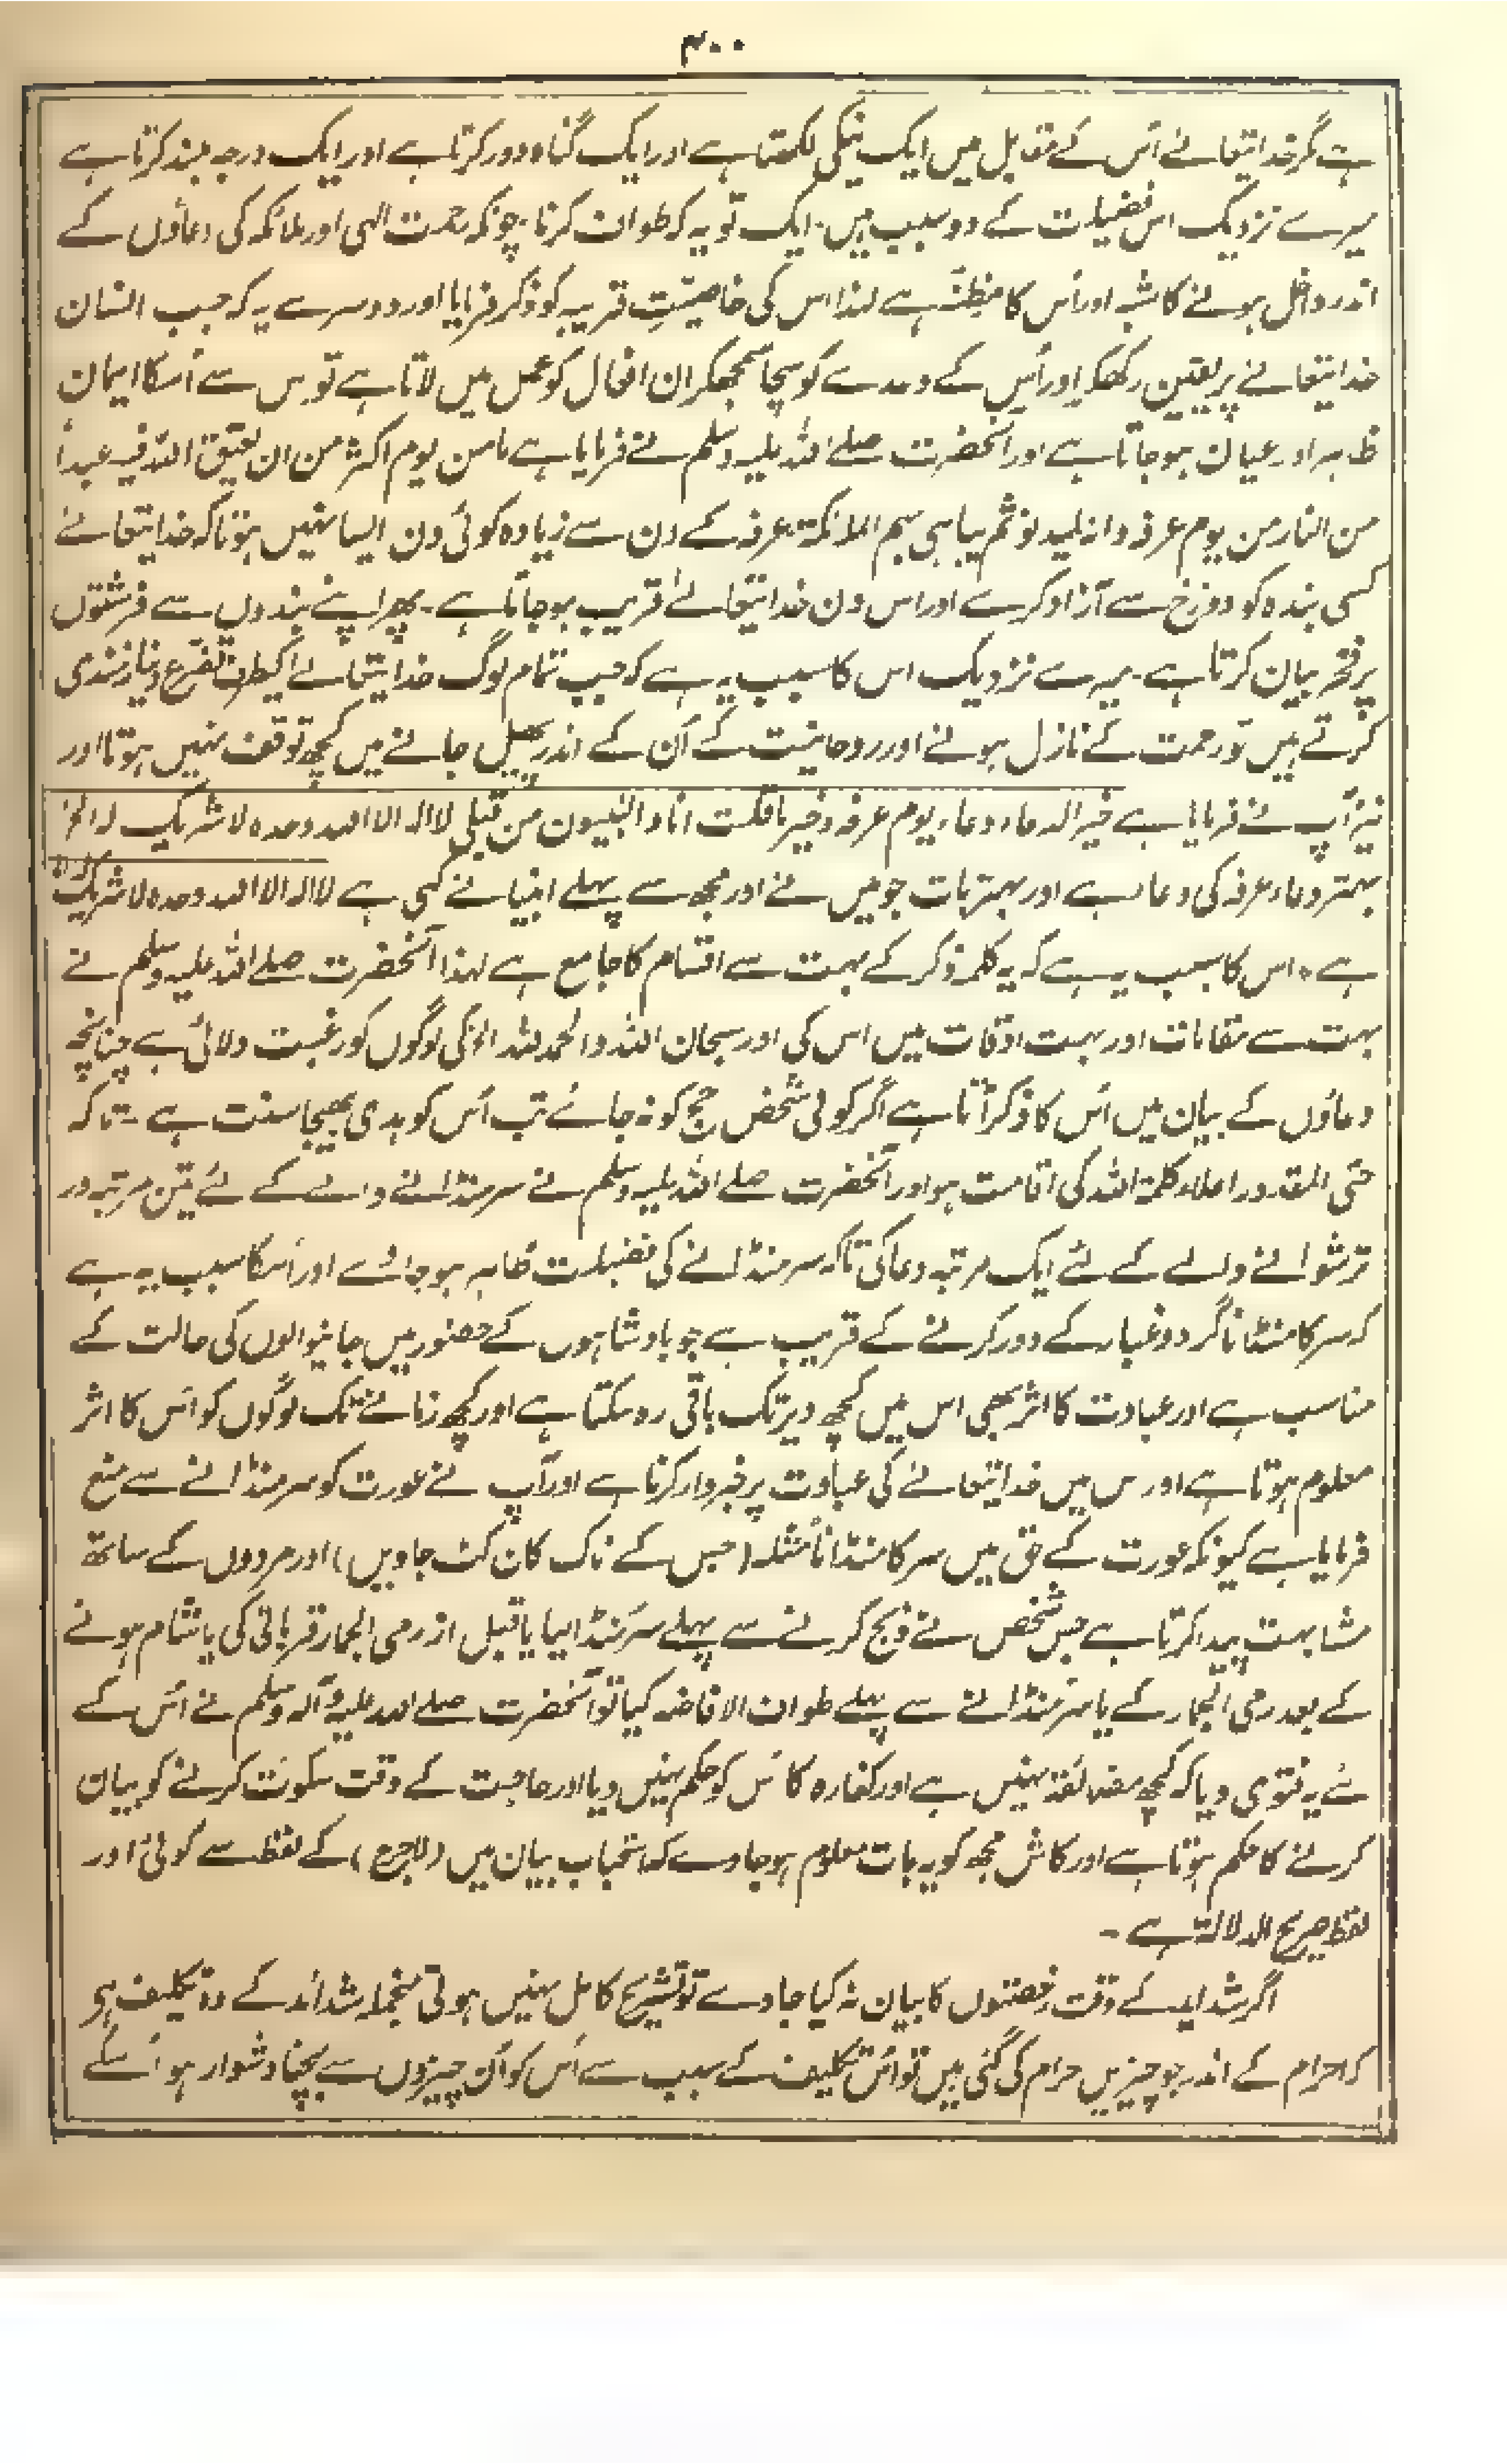 ۳۰۰
ہے مگر خدا تیعالےٰ اُس کے مقابل میں ایک نیکی لکھتا ہے اور ایک گناہ دور کرتا ہے اور ایک درجہ بلند کرتا ہے
میرے نزدیک اس فضیلت کے دو سبب ہیں۔ ایک تو یہ کہ طواف کرنا۔ چونکہ رحمت الٰہی اور ملائکہ کی دعاؤں کے
اندر داخل ہونے کا شبہ اور اُس کا مظنّہ ہے لہذا اس کی خاصیّتِ قریبہ کو ذکر فرمایا اور دوسرے یہ کہ جب انسان
خدا تیعالےٰ پر یقین رکھکر اور اُس کے وعدے کو سچا سمجھکر ان افعال کو عمل میں لاتا ہے تو اس سے اُسکا ایمان
ظاہر اور عیان ہو جاتا ہے اور آنحضرت صلے اللہ علیہ وسلم نے فرمایا ہے مامن یوم اکثر من ان یعتق اللہ فیہ عبداً
من النار من یوم عرفہ وانہ لیدنو ثم یباہی بہم الملائکۃ عرفہ کے دن سے زیادہ کوئی دن ایسا نہیں ہوتا کہ خدا تیعالےٰ
کسی بندہ کو دوزخ سے آزاد کرے اور اس دن خدا تیعالےٰ قریب ہو جاتا ہے۔ پھر اپنے بندوں سے فرشتوں
پر فخر بیان کرتا ہے۔ میرے نزدیک اس کا سبب یہ ہے کہ جب تمام لوگ خدا تیعالےٰ کیطرف تضرّع و نیازمندی
کرتے ہیں تو رحمت کے نازل ہونے اور روحانیت کے اُن کے اندر پھیل جانے میں کچھ توقف نہیں ہوتا اور
نیز آپ نے فرمایا ہے خیر الدعاء دعاء یوم عرفہ وخیر ماقلت انا والنبیون من قبلی لا الہ الا اللہ وحدہ لا شریک لہ الخ
بہتر دعاء عرفہ کی دعا ہے اور بہتر بات جو میں نے اور مجھ سے پہلے انبیا نے کہی ہے لا الہ الا اللہ وحدہ لا شریک لہ الخ
ہے۔ اس کا سبب یہ ہے کہ یہ کلمہ ذکر کے بہت سے اقسام کا جامع ہے لہذا آنحضرت صلے اللہ علیہ وسلم نے
بہت سے مقامات اور بہت اوقات میں اس کی اور سبحان اللہ والحمد للہ الخ کی لوگوں کو رغبت دلائی ہے چنانچہ
دعاؤں کے بیان میں اُس کا ذکر آتا ہے اگر کوئی شخص حج کو نہ جائے تب اُس کو ہدی بھیجنا سنت ہے۔ تاکہ
حتی المقدور اعلاء کلمۃ اللہ کی اقامت ہو اور آنحضرت صلے اللہ علیہ وسلم نے سر منڈانے والے کے لئے تین مرتبہ اور
ترشوانے والے کے لئے ایک مرتبہ دعا کی تاکہ سر منڈانے کی فضیلت ظاہر ہو جائے اور اُسکا سبب یہ ہے
کہ سر کا منڈانا گرد و غبار کے دور کرنے کے قریب ہے جو بادشاہوں کے حضور میں جانیوالوں کی حالت کے
مناسب ہے اور عبادت کا اثر بھی اس میں کچھ دیر تک باقی رہ سکتا ہے اور کچھ زمانے تک لوگوں کو اُس کا اثر
معلوم ہوتا ہے اور اس میں خدا تیعالےٰ کی عبادت پر خبردار کرنا ہے اور آپ نے عورت کو سر منڈانے سے منع
فرمایا ہے کیونکہ عورت کے حق میں سر کا منڈانا مُثلہ (جس کے ناک کان کٹ جاویں) اور مردوں کے ساتھ
مشابہت پیدا کرتا ہے جس شخص نے ذبح کرنے سے پہلے سر منڈا لیا یا قبل از رمی الجمار قربانی کی یا شام ہونے
کے بعد رمی الجمار کے یا سر منڈانے سے پہلے طواف الافاضہ کیا تو آنحضرت صلے اللہ علیہ وآلہ وسلم نے اُس کے
لئے یہ فتوی دیا کہ کچھ مضائقہ نہیں ہے اور کفارہ کا اُس کو حکم نہیں دیا اور حاجت کے وقت سکوت کرنے کو بیان
کرنے کا حکم ہوتا ہے اور کاش مجھ کو یہ بات معلوم ہو جاوے کہ استحباب بیان میں (لاحرج) کے لفظ سے کوئی اور
لفظ صریح الدلالۃ ہے۔
اگر شداید کے وقت رخصتوں کا بیان نہ کیا جاوے تو تشریح کامل نہیں ہوتی منجملہ شدائد کے وہ تکلیف ہے
کہ احرام کے اندر جو چیزیں حرام کی گئی ہیں تو اس تکلیف کے سبب سے اُس کو اُن چیزوں سے بچنا دشوار ہو اُسکے